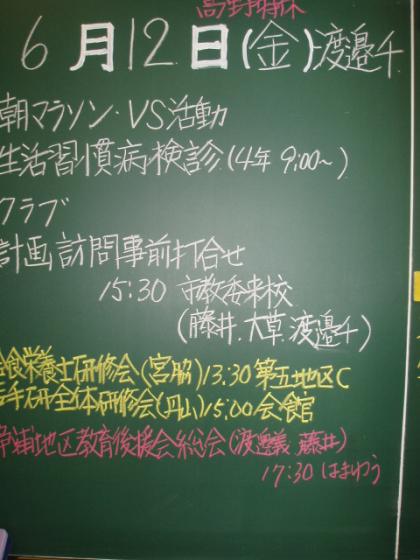 高野特休
6月12日(金) 渡邉千
朝マラソン・VS活動
生活習慣病検診(4年 9:00~)
クラブ
計画訪問事前打合せ
15:30 市教委来校
(藤井.大草.渡邉千)
給食栄養士研修会(宮脇)13:30 第五地区C
若手研全体研修会(円山)15:00 会食官
地区教育後援会総会(渡邉義 藤井)
17:30 はまゆう